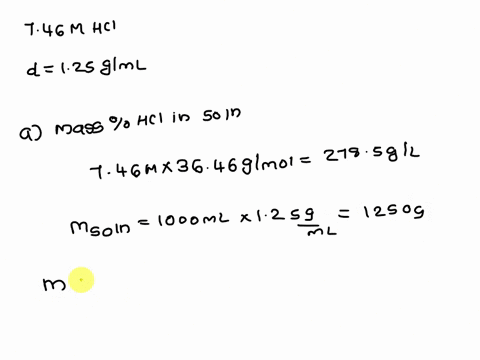 7.46 M HCl
d = 1.25 g/mL
a) mass % HCl in soln
7.46M × 36.46g/mol = 278.5g/L
m soln = 1000mL × 1.25g/mL = 1250g
m